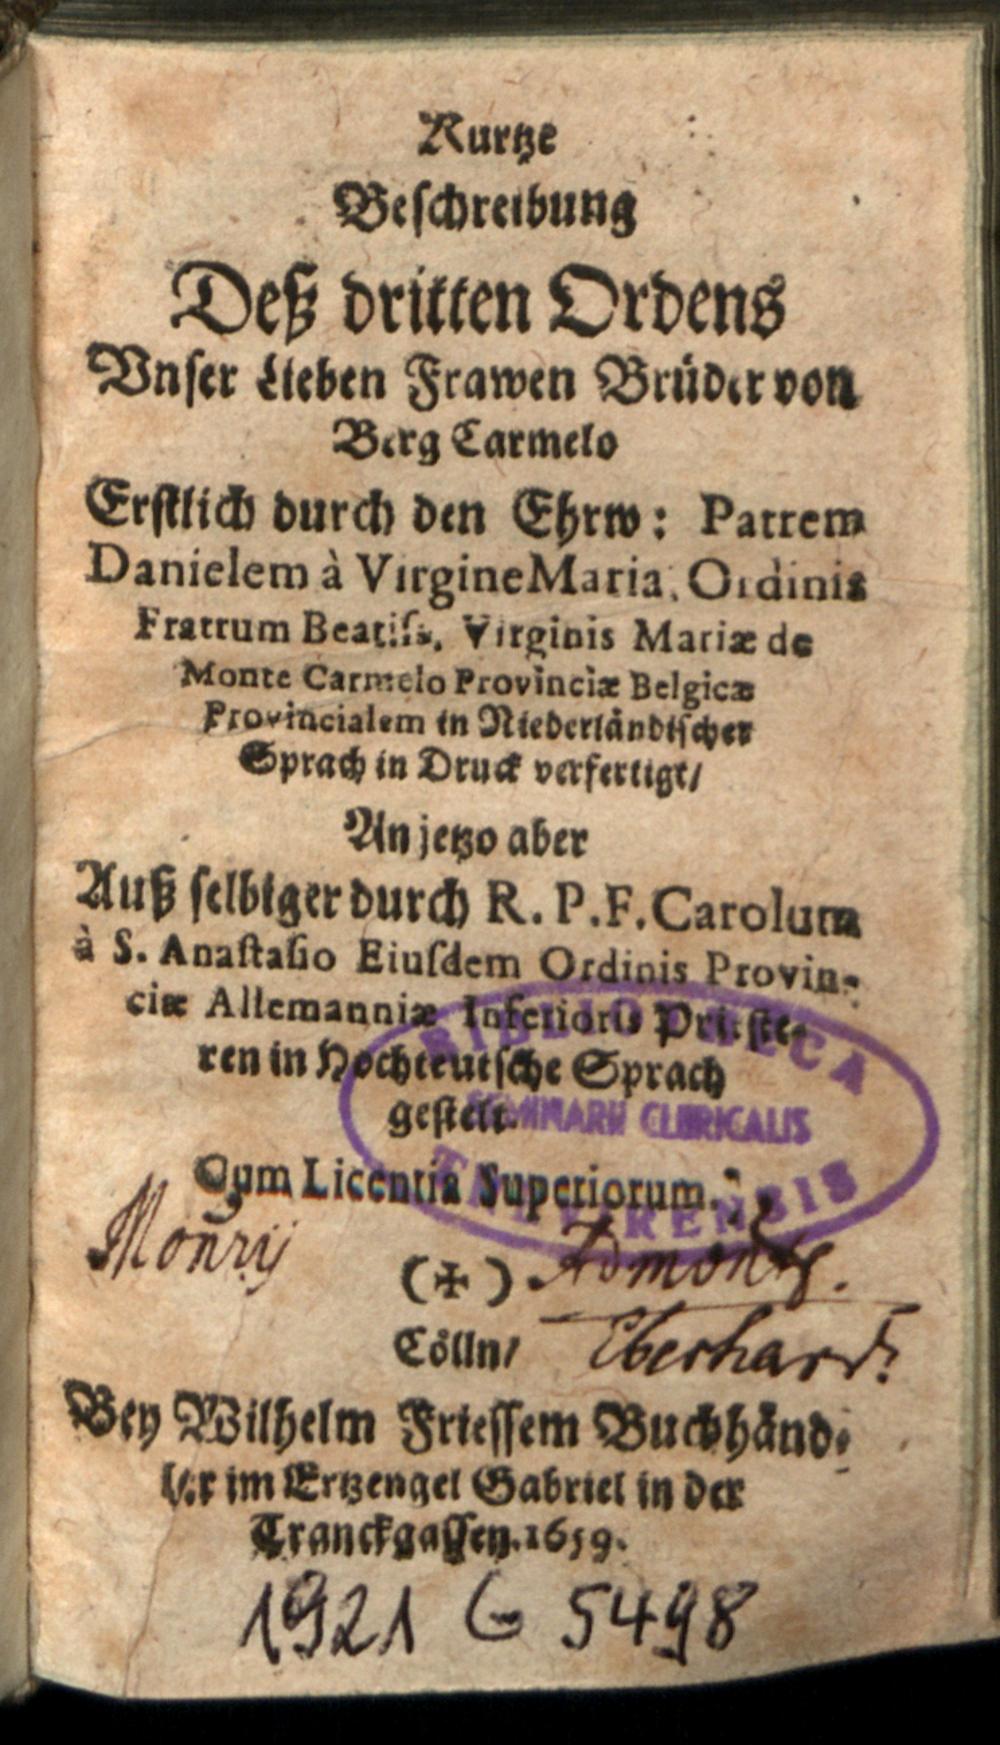 Kurtze
Beſchreibung
Deß dritten Ordens
Vnſer Lieben Frawen Brüder von
Berg Carmelo
Erſtlich durch den Ehrw: Patrem
Danielem à Virgine Maria, Ordinis
Fratrum Beatiſs. Virginis Mariæ de
Monte Carmelo Provinciæ Belgicæ
Provincialem in Niederländiſcher
Sprach in Druck verfertigt/
An jetzo aber
Auß ſelbiger durch R. P. F. Carolum
à S. Anaſtaſio Eiuſdem Ordinis Provin-
ciæ Allemanniæ Inferioris Prieſte-
ren in Hochteutſche Sprach
geſtelt.
BIBLIOTHECA
SEMINARII CLERICALIS
TREVIRENSIS
Cum Licentia Superiorum.
(✠)
Cölln/
Eberhard:
Bey Wilhelm Frieſſem Buchhänd-
ler im Ertzengel Gabriel in der
Tranckgaſſen. 1659.
1921 G 5498